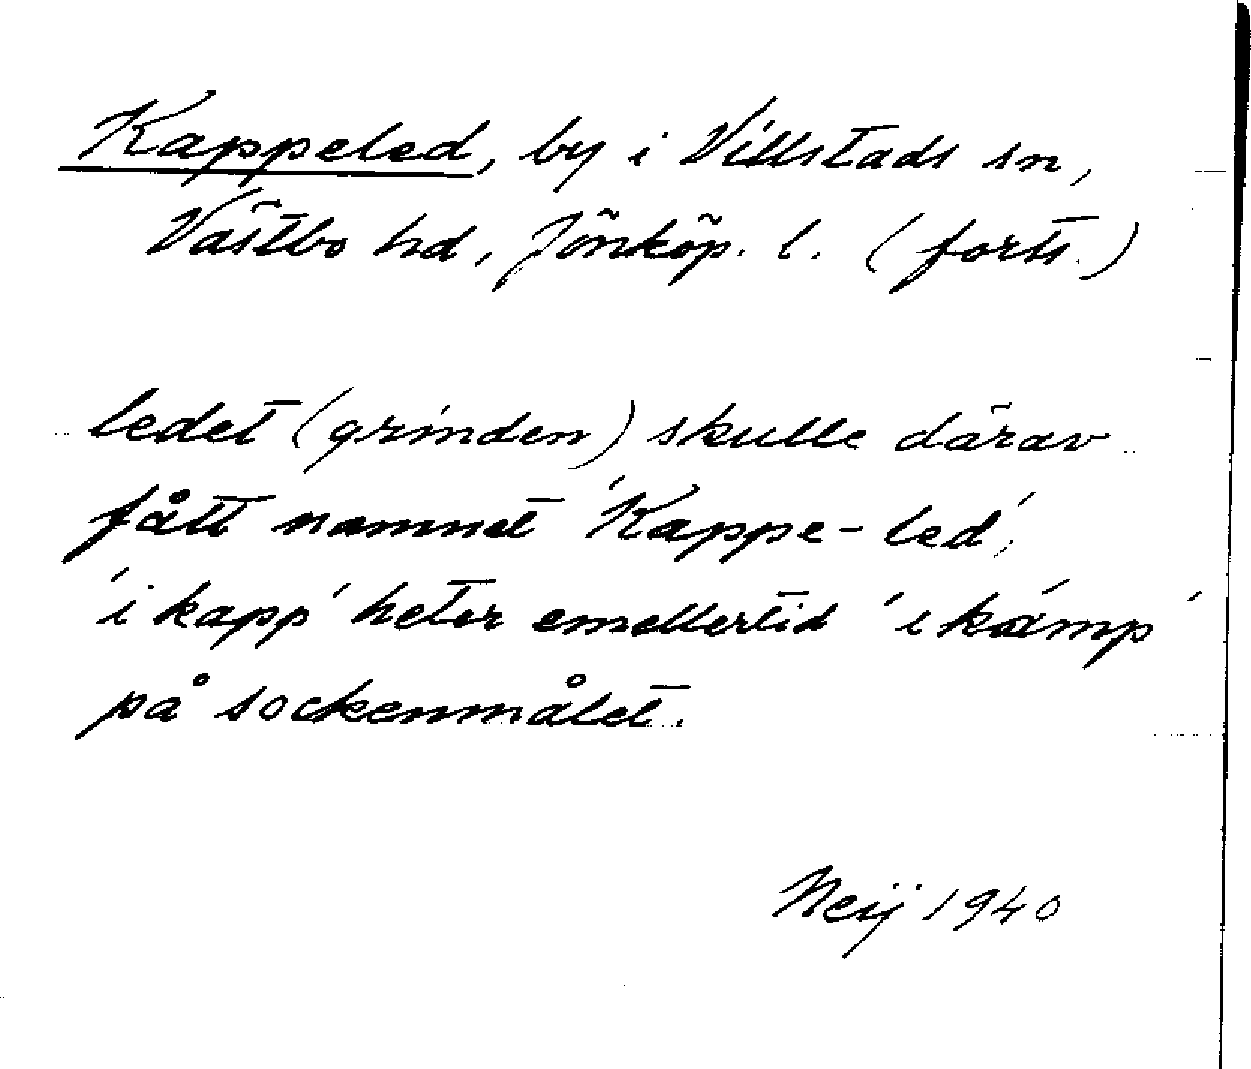 Kappeled, by i Villstads sn,
Västbo hd, Jönköp. l. (forts.)
ledet (grinden) skulle därav
fått namnet 'Kappe-led',
'i kapp' heter emellertid 'i kämp'
på sockenmålet.
Neij 1940